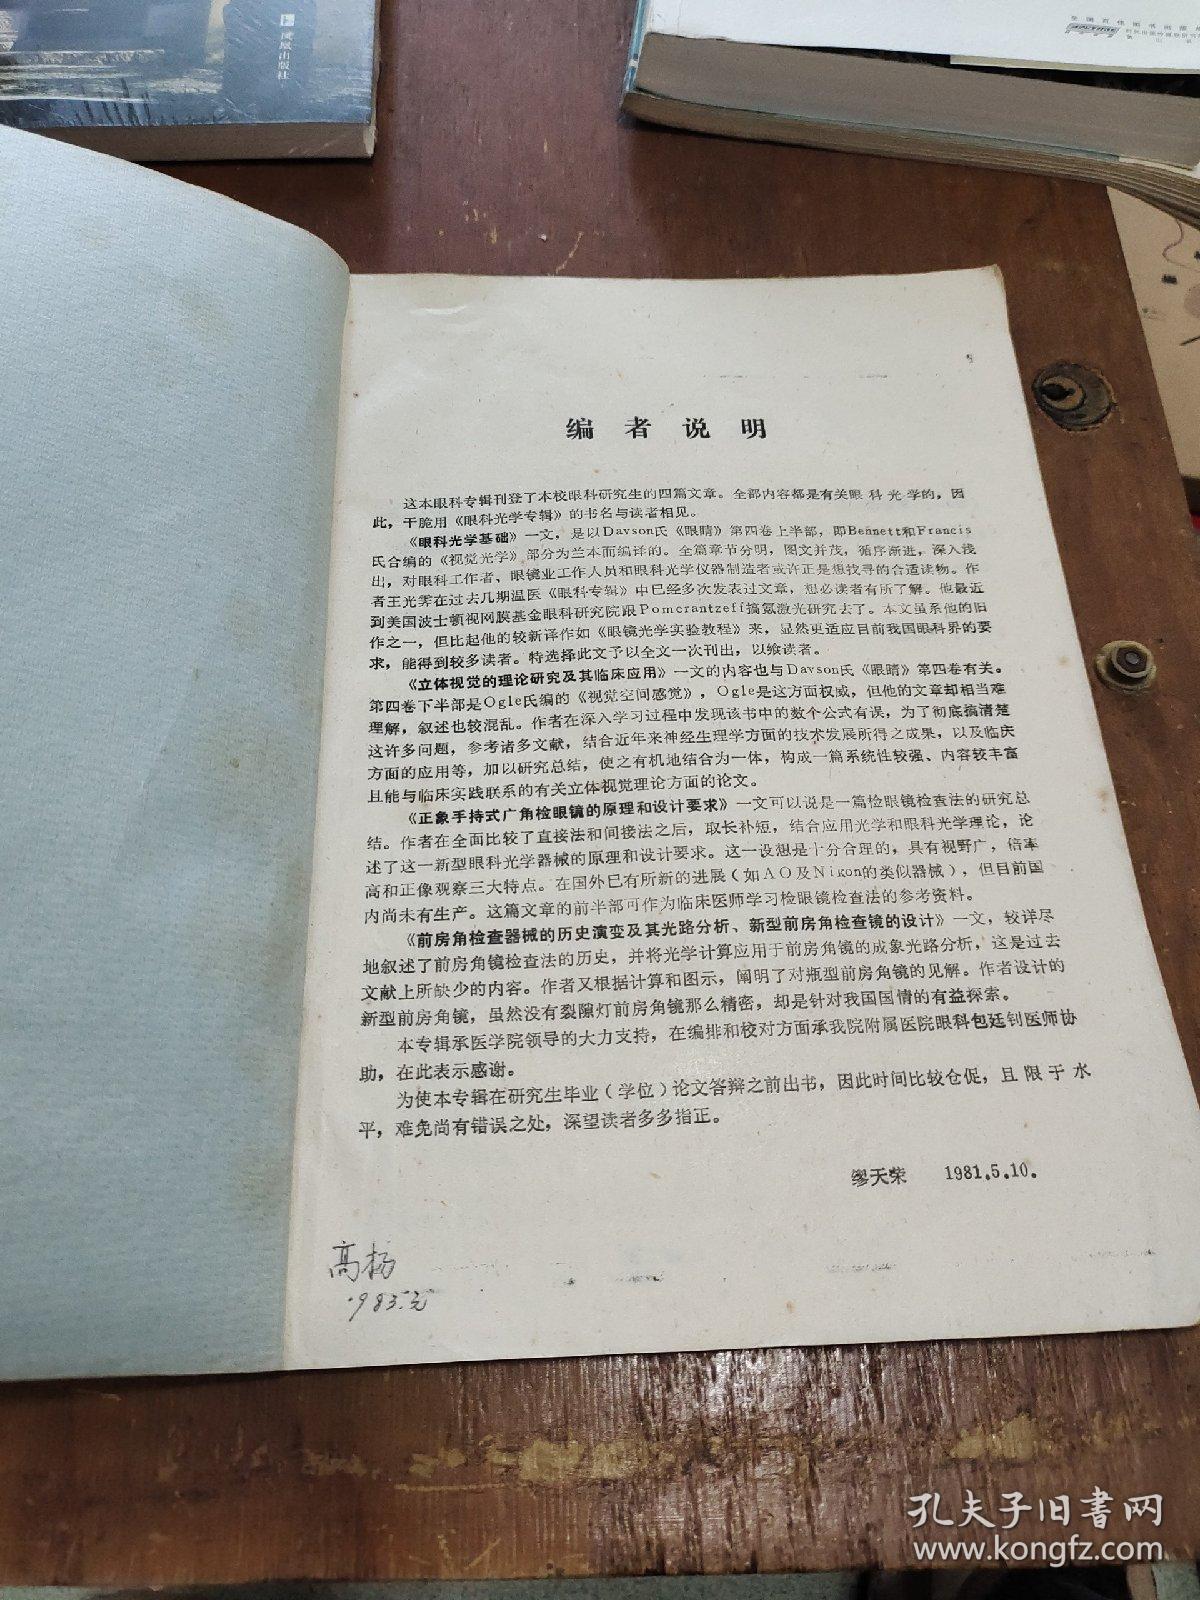 凤凰出版社
编者说明
这本眼科专辑刊登了本校眼科研究生的四篇文章。全部内容都是有关眼科光学的，因
此，干脆用《眼科光学专辑》的书名与读者相见。
《眼科光学基础》一文，是以Davson氏《眼睛》第四卷上半部，即Bennett和Francis
氏合编的《视觉光学》部分为兰本而编译的。全篇章节分明，图文并茂，循序渐进，深入浅
出，对眼科工作者、眼镜业工作人员和眼科光学仪器制造者或许正是想找寻的合适读物。作
者王光霁在过去几期温医《眼科专辑》中已经多次发表过文章，想必读者有所了解。他最近
到美国波士顿视网膜基金眼科研究院跟Pomcrantzeff搞氪激光研究去了。本文虽系他的旧
作之一，但比起他的较新译作如《眼镜光学实验教程》来，显然更适应目前我国眼科界的要
求，能得到较多读者。特选择此文予以全文一次刊出，以飨读者。
《立体视觉的理论研究及其临床应用》一文的内容也与Davson氏《眼睛》第四卷有关。
第四卷下半部是Ogle氏编的《视觉空间感觉》，Ogle是这方面权威，但他的文章却相当难
理解，叙述也较混乱。作者在深入学习过程中发现该书中的数个公式有误，为了彻底搞清楚
这许多问题，参考诸多文献，结合近年来神经生理学方面的技术发展所得之成果，以及临床
方面的应用等，加以研究总结，使之有机地结合为一体，构成一篇系统性较强、内容较丰富
且能与临床实践联系的有关立体视觉理论方面的论文。
《正象手持式广角检眼镜的原理和设计要求》一文可以说是一篇检眼镜检查法的研究总
结。作者在全面比较了直接法和间接法之后，取长补短，结合应用光学和眼科光学理论，论
述了这一新型眼科光学器械的原理和设计要求。这一设想是十分合理的，具有视野广，倍率
高和正像观察三大特点。在国外已有所新的进展（如AO及Nikon的类似器械），但目前国
内尚未有生产。这篇文章的前半部可作为临床医师学习检眼镜检查法的参考资料。
《前房角检查器械的历史演变及其光路分析、新型前房角检查镜的设计》一文，较详尽
地叙述了前房角镜检查法的历史，并将光学计算应用于前房角镜的成象光路分析，这是过去
文献上所缺少的内容。作者又根据计算和图示，阐明了对瓶型前房角镜的见解。作者设计的
新型前房角镜，虽然没有裂隙灯前房角镜那么精密，却是针对我国国情的有益探索。
本专辑承医学院领导的大力支持，在编排和校对方面承我院附属医院眼科包廷钊医师协
助，在此表示感谢。
为使本专辑在研究生毕业（学位）论文答辩之前出书，因此时间比较仓促，且限于水
平，难免尚有错误之处，深望读者多多指正。
缪天荣 1981.5.10.
高杨
孔夫子旧书网
www.kongfz.com